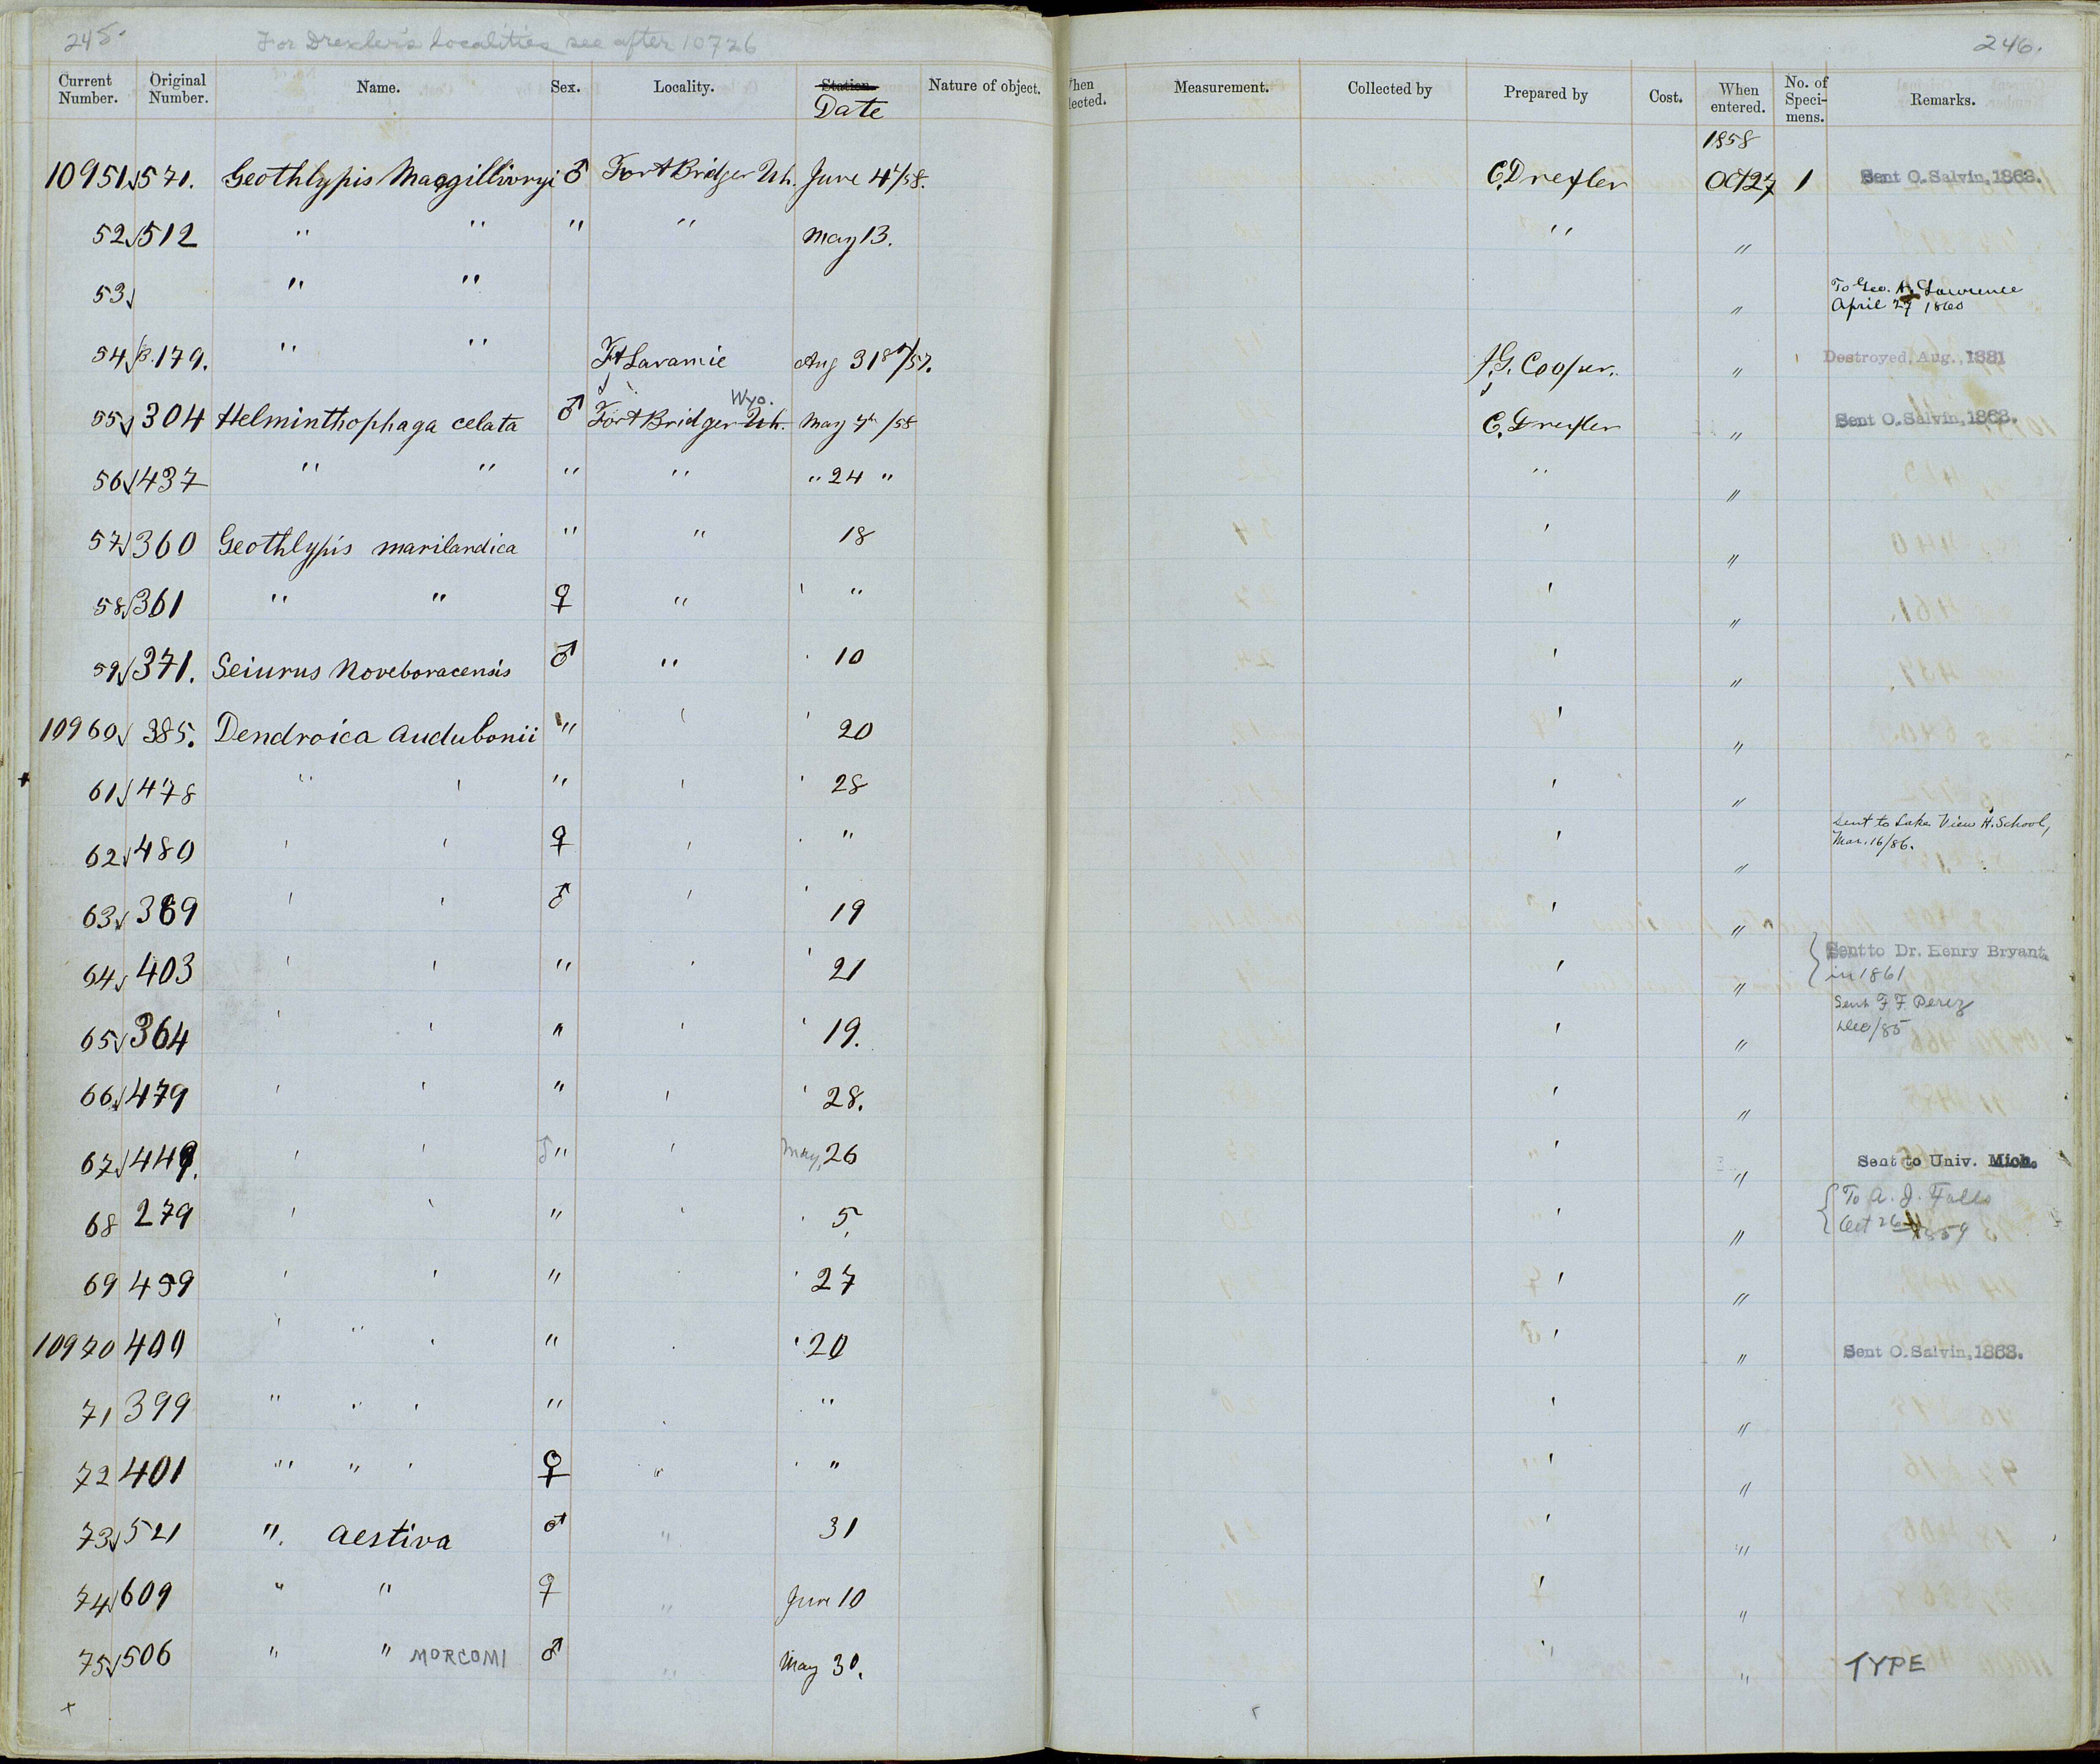 245. For Drexler's localities see after 10726 246.
Current Number. Original Number. Name. Sex. Locality. Station Date Nature of object. When lected. Measurement. Collected by Prepared by Cost. When entered. No. of Specimens. Remarks.
1858
10951 571. Geothlypis Macgillivryi ♂ Fort Bridger Uh. June 4/58. C. Drexler Oct 27 1 Sent O. Salvin, 1863.
52 512 " " " " May 13. " "
53 " " " To Geo. N. Lawrence
April 27 1860
54 B.179. " " Ft Laramie Aug 31st/57. J.G. Cooper. " Destroyed, Aug., 1881
Wyo.
55 304 Helminthophaga celata ♂ Fort Bridger Uh. May 7th /58 C. Drexler " Sent O. Salvin, 1863.
56 437 " " " " " 24 " " "
57 360 Geothlypis marilandica " " 18 ' "
58 361 " " ♀ " ' " ' "
59 371. Seiurus Noveboracensis ♂ " 10 ' "
10960 385. Dendroica Audubonii " ' ' 20 ' "
61 478 " ' " ' ' 28 ' "
62 480 ' ' ♀ ' " ' " Sent to Lake View H. School,
Mar. 16/86.
63 389 ' ' ♂ ' ' 19 ' "
64 403 ' ' " ' ' 21 ' " Sent to Dr. Henry Bryant.
in 1861
Sent F. F. Perez
Dec/85
65 364 ' ' " ' ' 19. ' "
66 479 ' ' " ' ' 28. ' "
67 449. ' ' ♂ " ' May, 26 ' " Sent to Univ. Mich.
68 279 ' ' " ' 5. ' " To A. J. Falls
Oct 26 1859
69 459 ' ' " ' 27 ' "
10970 400 ' " ' " ' 20 ' " Sent O. Salvin, 1863.
71 399 " " ' " " ' "
72 401 " " ' ♀ " " ' "
73 521 " aestiva ♂ " 31 ' "
74 609 " " ♀ " June 10 ' "
75 506 " " MORCOMI ♂ " May 30. " " TYPE